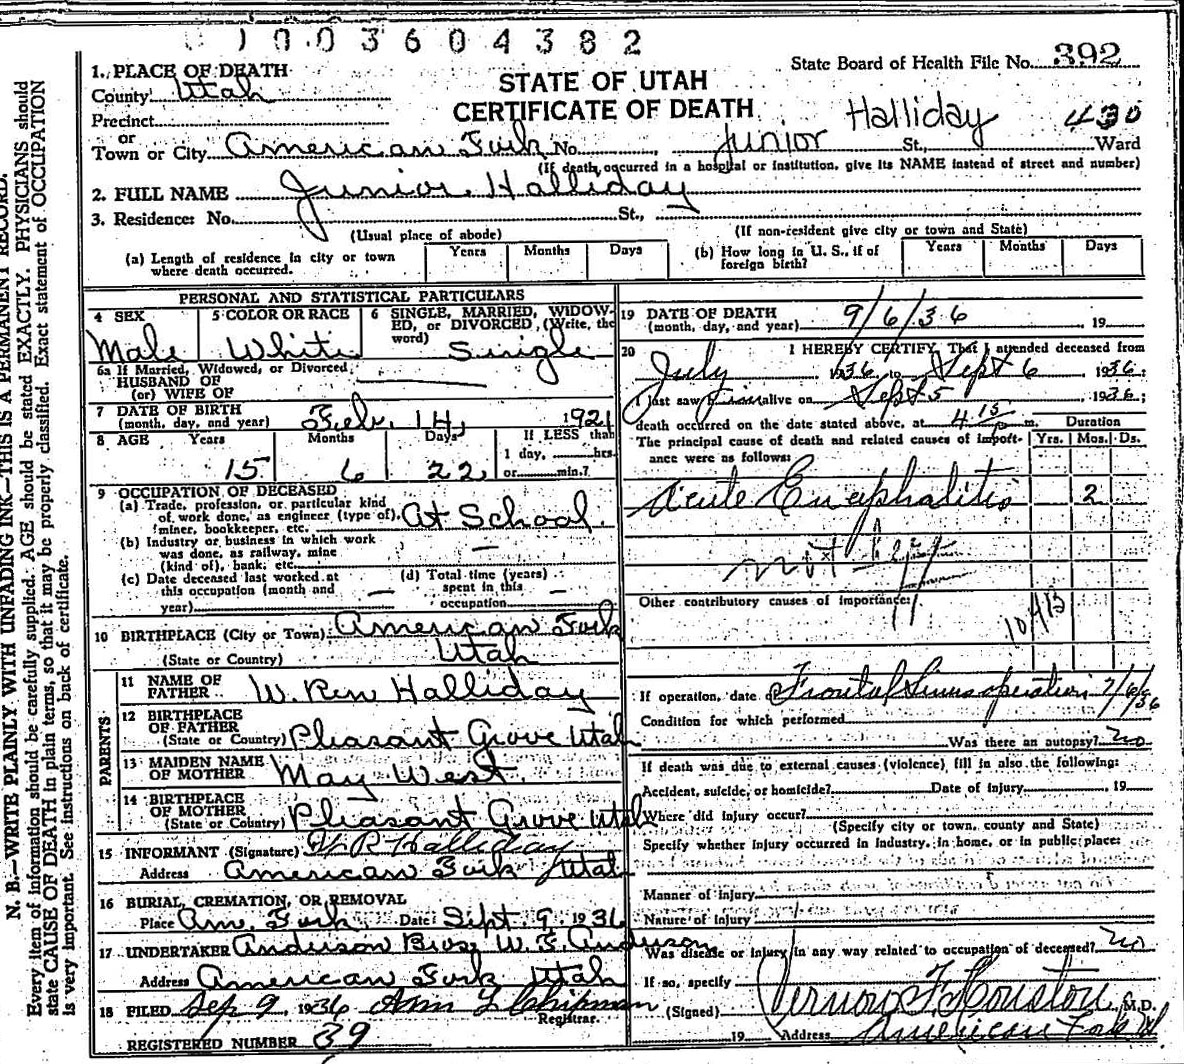 1003604382
State Board of Health File No. 392
1. PLACE OF DEATH
STATE OF UTAH
County Utah
CERTIFICATE OF DEATH
Precinct
Junior Halliday 430
or
Town or City American Fork No. St., Ward
(If death occurred in a hospital or institution, give its NAME instead of street and number)
2. FULL NAME Junior Halliday
3. Residence: No. St.,
(Usual place of abode) (If non-resident give city or town and State)
(a) Length of residence in city or town where death occurred. Years Months Days (b) How long in U. S., if of foreign birth? Years Months Days
PERSONAL AND STATISTICAL PARTICULARS
4 SEX 5 COLOR OR RACE 6 SINGLE, MARRIED, WIDOW-
ED, or DIVORCED, (Write, the
word)
Male White Single
6a If Married, Widowed, or Divorced
HUSBAND OF
(or) WIFE OF
7 DATE OF BIRTH
(month, day, and year) Feb. 14, 1921
8 AGE Years Months Days If LESS than
1 day, hrs.
15 6 22 or min.?
9 OCCUPATION OF DECEASED
(a) Trade, profession, or particular kind
of work done, as engineer (type of), At School
miner, bookkeeper, etc.
(b) Industry or business in which work
was done, as railway, mine —
(kind of), bank, etc.
(c) Date deceased last worked at (d) Total time (years)
this occupation (month and — spent in this —
year) occupation
10 BIRTHPLACE (City or Town) American Fork
(State or Country) Utah
PARENTS
11 NAME OF
FATHER W. Ren Halliday
12 BIRTHPLACE
OF FATHER
(State or Country) Pleasant Grove Utah
13 MAIDEN NAME
OF MOTHER May West
14 BIRTHPLACE
OF MOTHER
(State or Country) Pleasant Grove Utah
15 INFORMANT (Signature) W R Halliday
Address American Fork Utah
16 BURIAL, CREMATION, OR REMOVAL
Place Am. Fork Date Sept. 9, 1936
17 UNDERTAKER Anderson Bros. W. E. Anderson
Address American Fork Utah
18 FILED Sep. 9, 1936 Ann L Chipman
Registrar.
REGISTERED NUMBER 39
19 DATE OF DEATH
(month, day, and year) 9/6/36 , 19
20 I HEREBY CERTIFY, That I attended deceased from
July 1936, to Sept 6 1936;
I last saw him alive on Sept 5 , 1936;
death occurred on the date stated above, at 4 15 p m. Duration
The principal cause of death and related causes of import- Yrs. Mos. Ds.
ance were as follows:
Acute Encephalitis 2
not
Other contributory causes of importance:
If operation, date of Frontal Sinus operation 7/6/36
Condition for which performed
Was there an autopsy? no
If death was due to external causes (violence) fill in also the following:
Accident, suicide, or homicide? Date of injury 19
Where did injury occur?
(Specify city or town, county and State)
Specify whether injury occurred in industry, in home, or in public place:
Manner of injury
Nature of injury
Was disease or injury in any way related to occupation of deceased? no
If so, specify
(Signed) Vernon F. Houston, M.D.
19 Address American Fork Ut
N. B.—WRITE PLAINLY WITH UNFADING INK—THIS IS A PERMANENT RECORD.
Every item of information should be carefully supplied. AGE should be stated EXACTLY. PHYSICIANS should
state CAUSE OF DEATH in plain terms, so that it may be properly classified. Exact statement of OCCUPATION
is very important. See instructions on back of certificate.